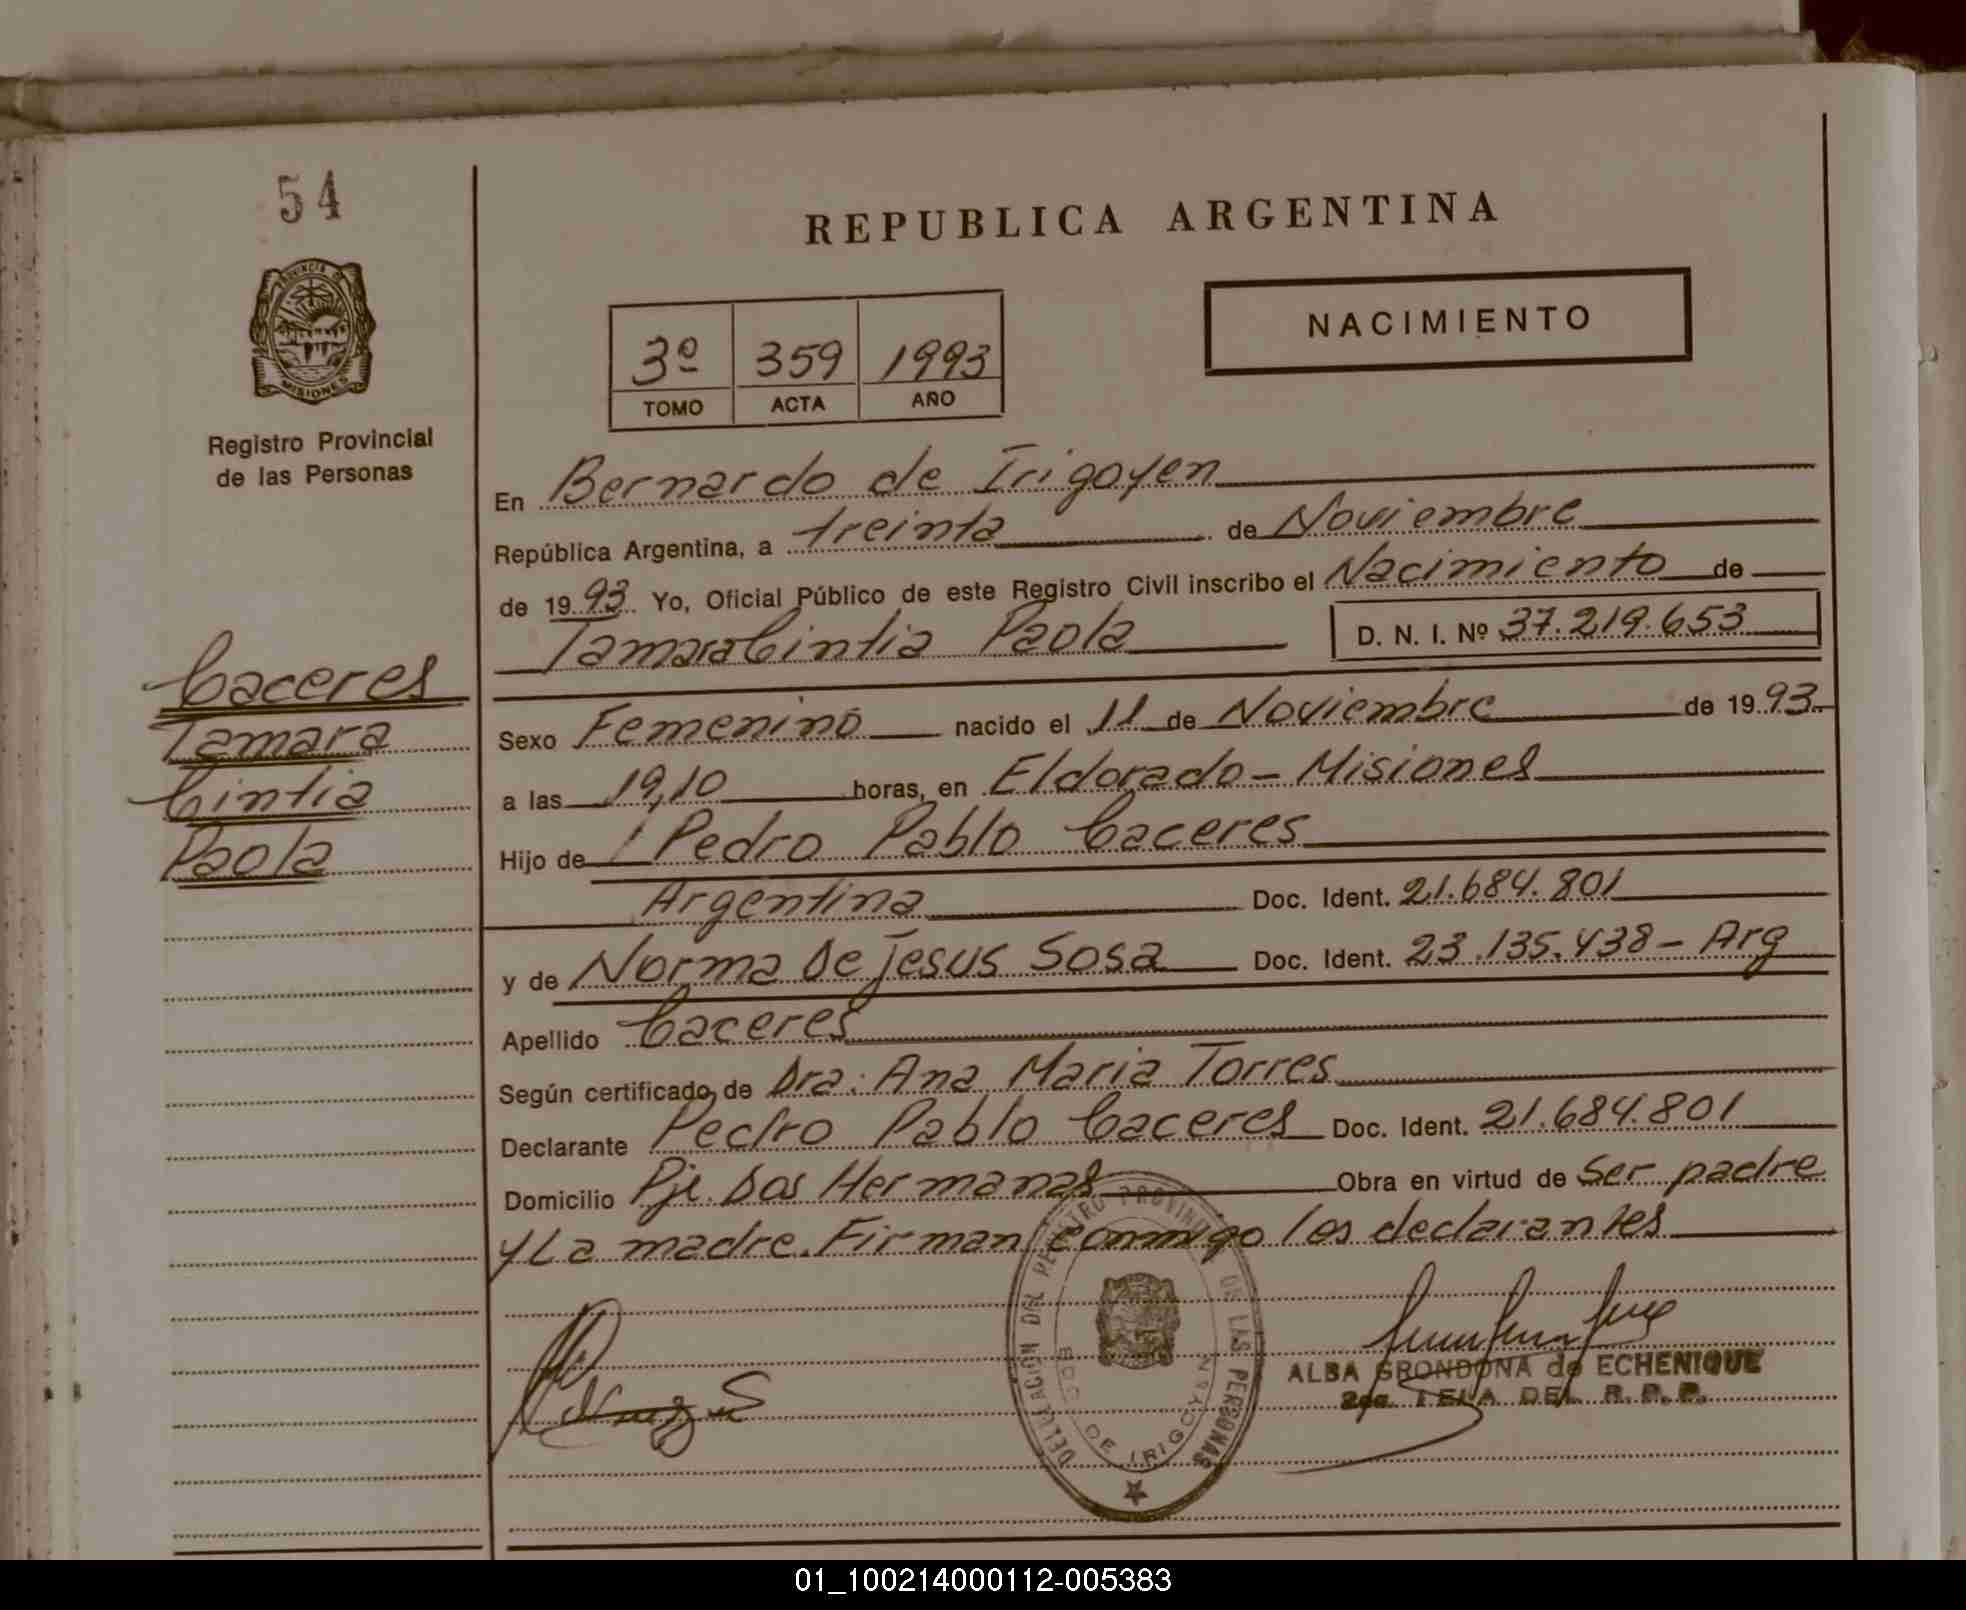 54
PROVINCIA DE
MISIONES
Registro Provincial
de las Personas
Caceres
Tamara
Cintia
Paola
REPUBLICA ARGENTINA
NACIMIENTO
3º 359 1993
TOMO ACTA AÑO
En Bernardo de Irigoyen
República Argentina, a treinta de Noviembre
de 1993 Yo, Oficial Público de este Registro Civil inscribo el Nacimiento de
Tamara Cintia Paola D. N. I. Nº 37.219.653
Sexo Femenino nacido el 11 de Noviembre de 1993
a las 19,10 horas, en Eldorado - Misiones
Hijo de Pedro Pablo Caceres
Argentina Doc. Ident. 21.684.801
y de Norma De Jesus Sosa Doc. Ident. 23.135.438 - Arg
Apellido Caceres
Según certificado de Dra. Ana Maria Torres
Declarante Pedro Pablo Caceres Doc. Ident. 21.684.801
Domicilio Pje. Dos Hermanas Obra en virtud de Ser padre
y La madre. Firman conmigo los declarantes
DELEGACION DEL REGISTRO PROVINCIAL DE LAS PERSONAS
BDO. DE IRIGOYEN
ALBA GRONDONA de ECHENIQUE
DEL R.P.P.
01_100214000112-005383